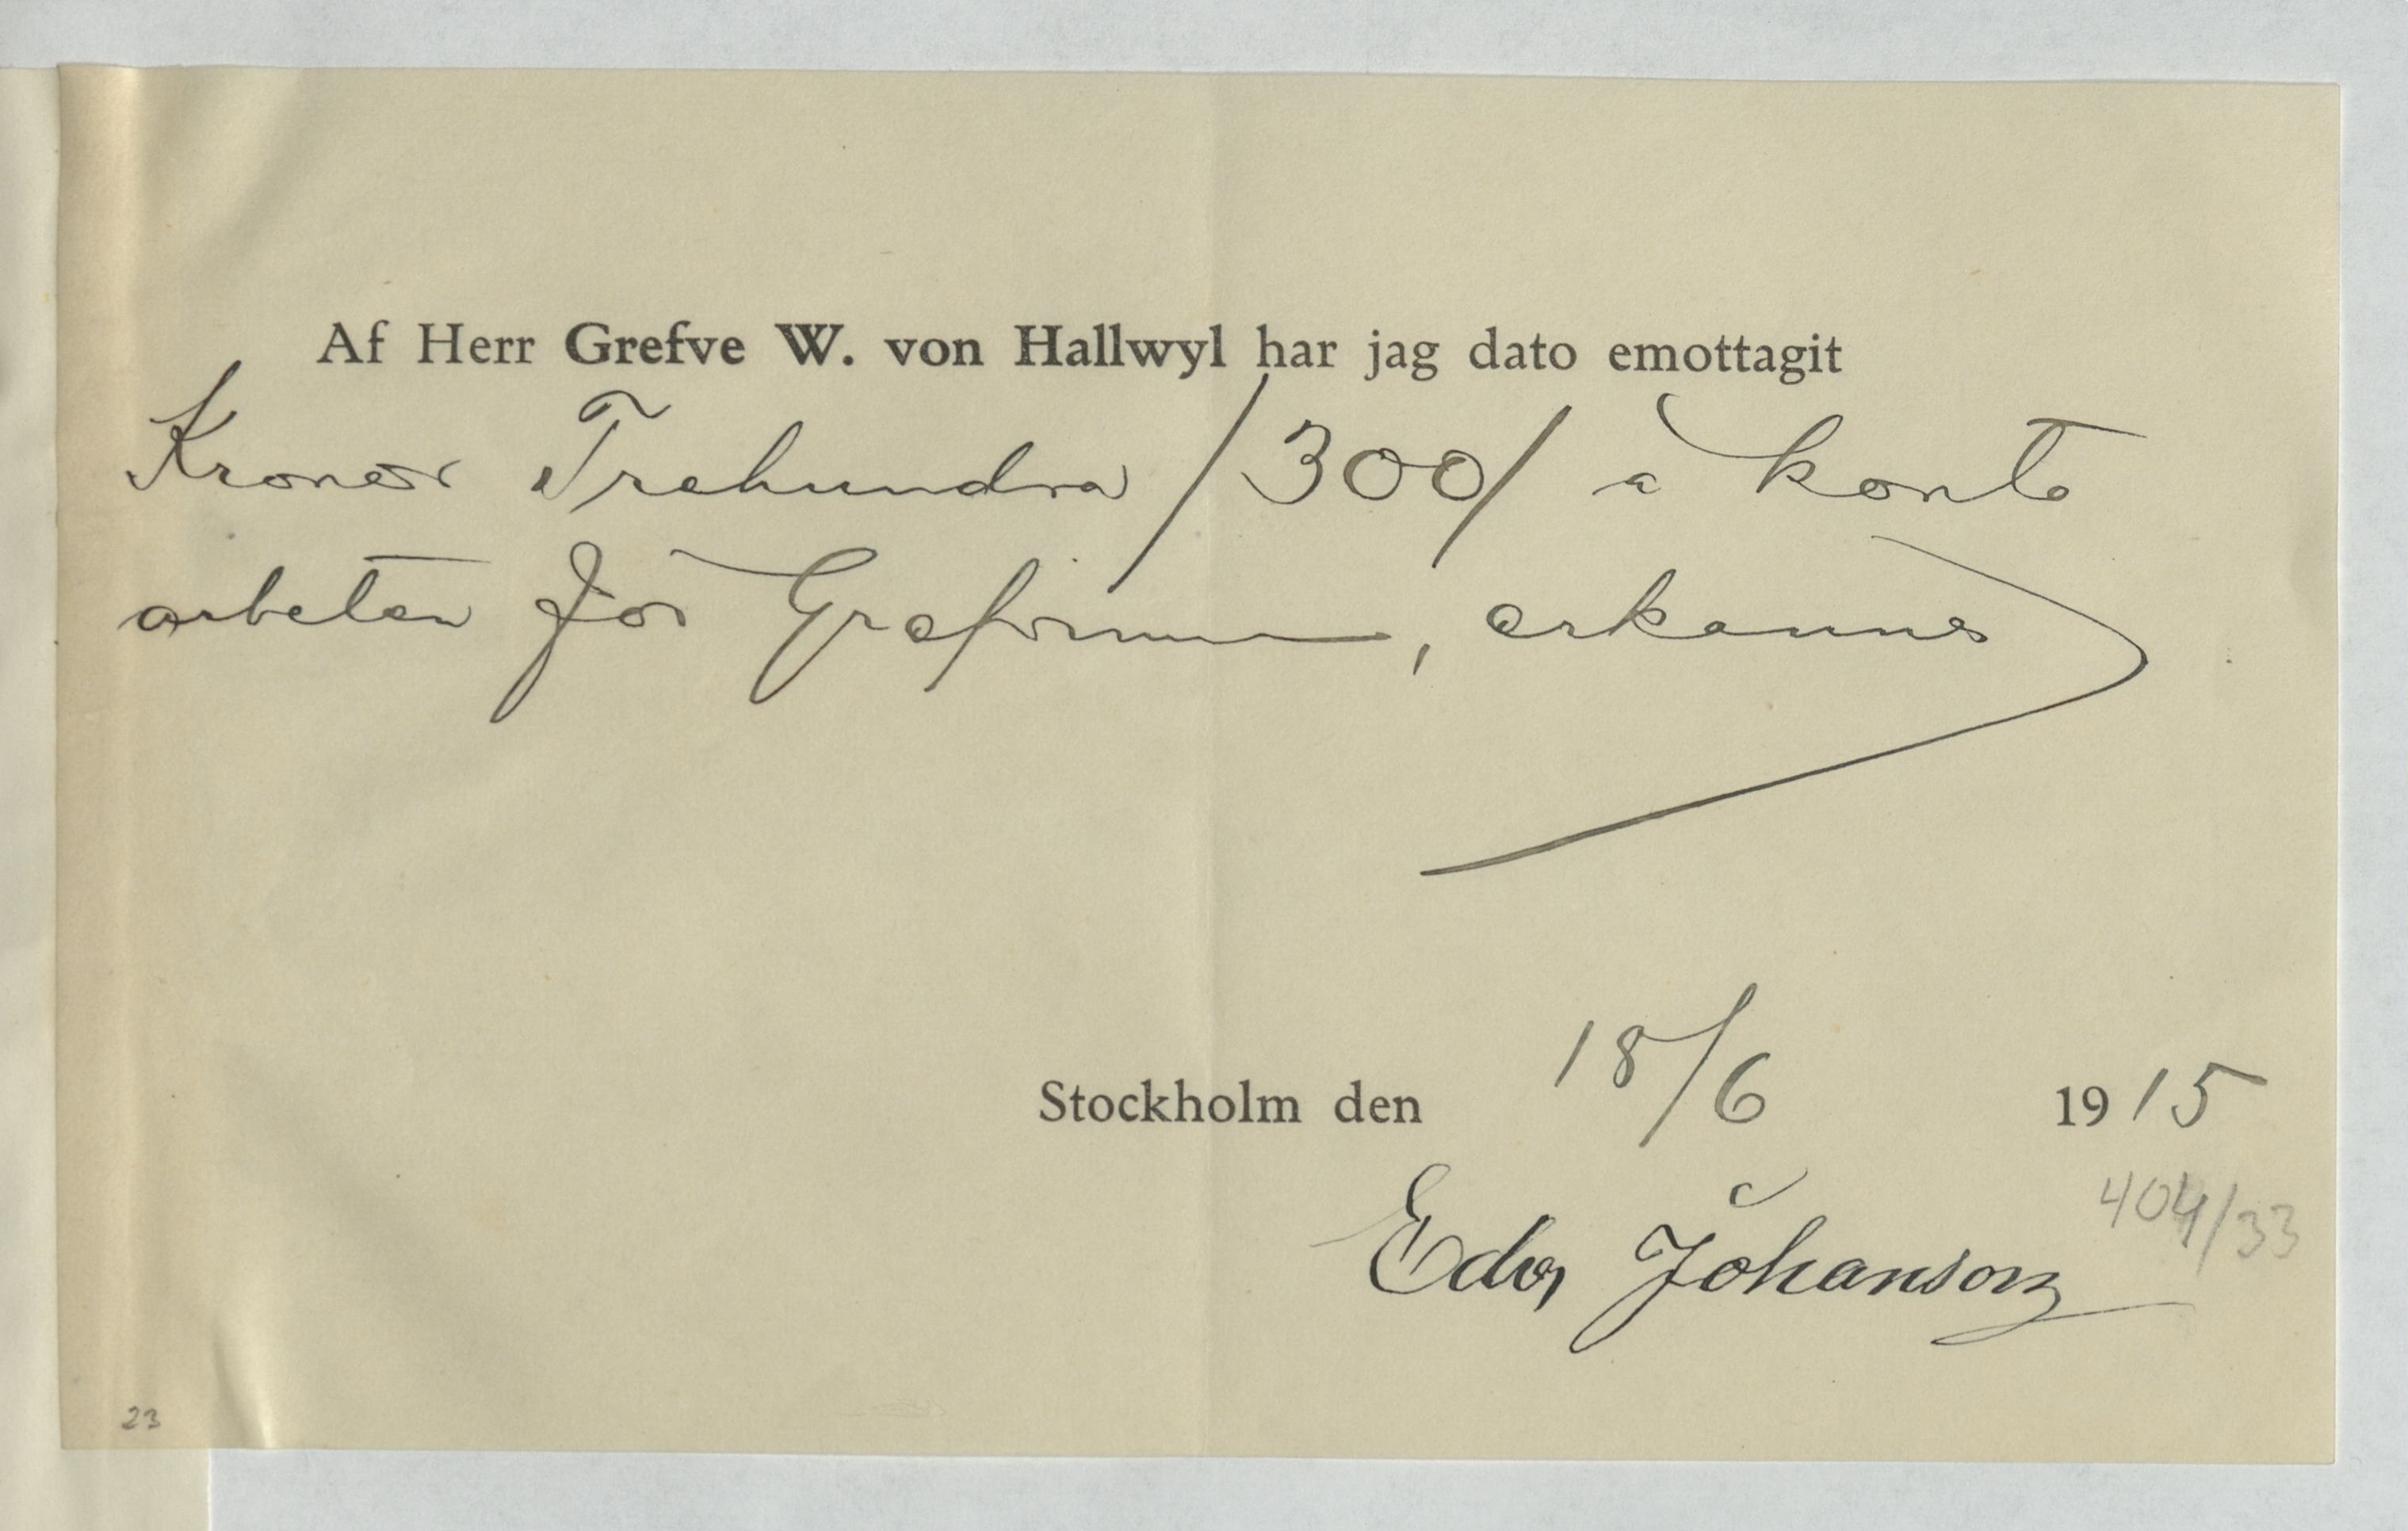 Af Herr Grefve W. von Hallwyl har jag dato emottagit
Kronor Trehundra /300/ à konto
arbeten för Grefvinnan, erkännes
Stockholm den 18/6 1915
404/33
Edv Johanson
23